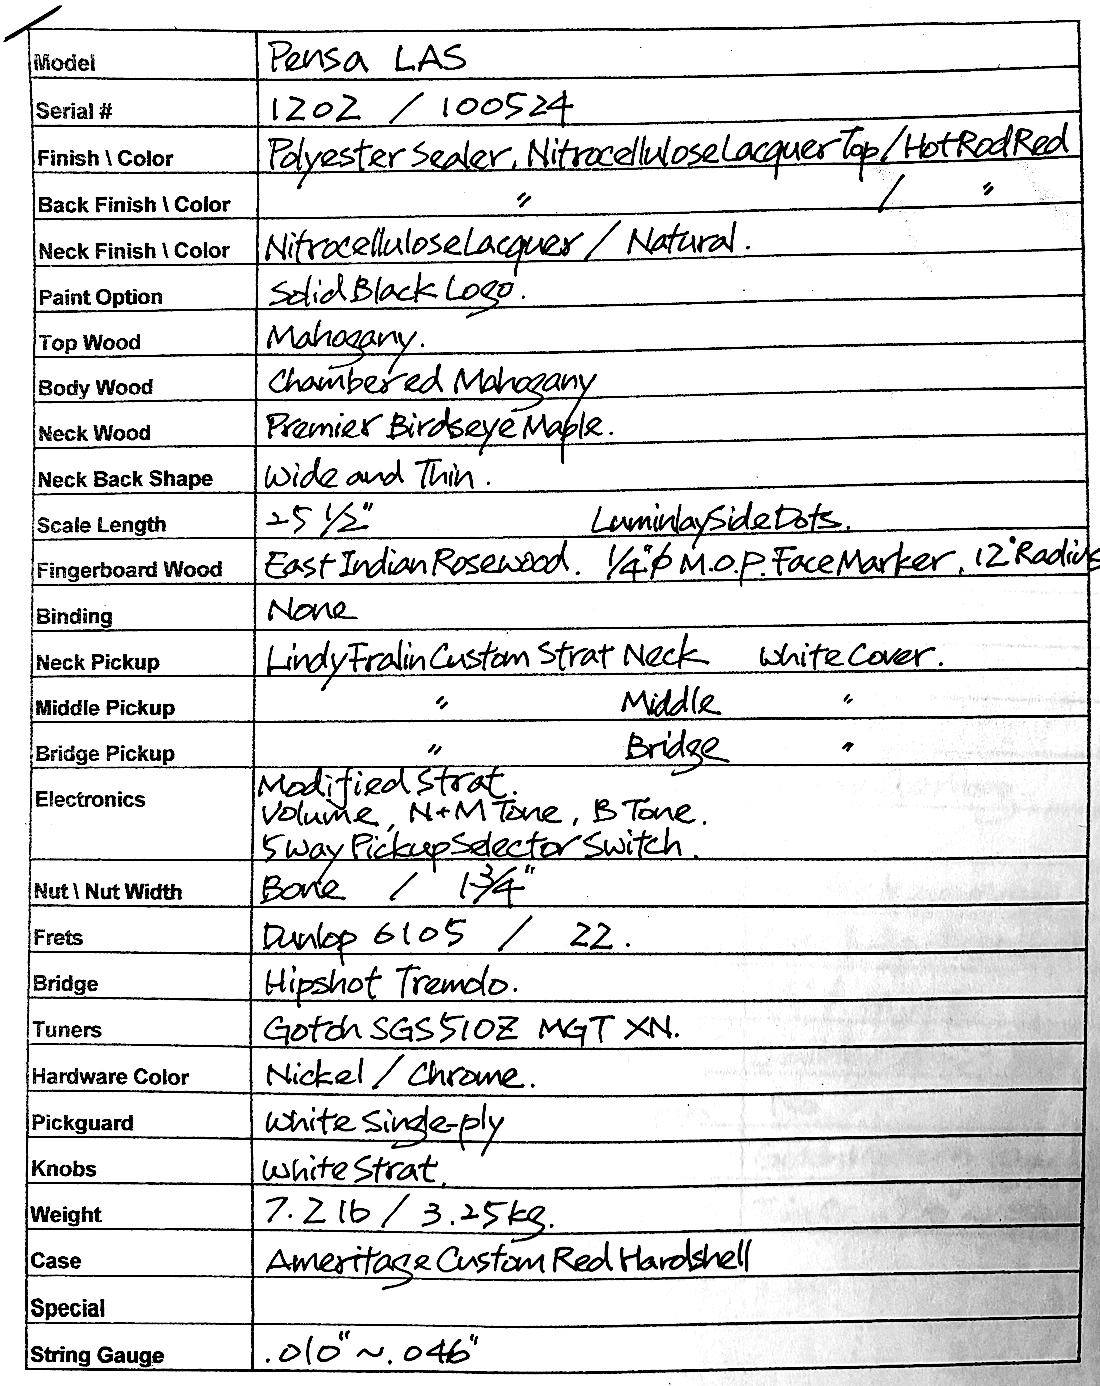 Model Pensa LAS
Serial # 1202 / 100524
Finish \ Color Polyester Sealer, Nitrocellulose Lacquer Top / Hot Rod Red
Back Finish \ Color 〃 / 〃
Neck Finish \ Color Nitrocellulose Lacquer / Natural.
Paint Option Solid Black Logo.
Top Wood Mahogany.
Body Wood Chambered Mahogany
Neck Wood Premier Birdseye Maple.
Neck Back Shape Wide and Thin.
Scale Length 25 1/2" Luminlay Side Dots.
Fingerboard Wood East Indian Rosewood. 1/4"⌀ M.O.P. Face Marker, 12" Radius
Binding None
Neck Pickup Lindy Fralin Custom Strat Neck White Cover.
Middle Pickup 〃 Middle 〃
Bridge Pickup 〃 Bridge 〃
Electronics Modified Strat.
Volume, N+M Tone, B Tone.
5 Way Pickup Selector Switch.
Nut \ Nut Width Bone / 1 3/4"
Frets Dunlop 6105 / 22.
Bridge Hipshot Tremolo.
Tuners Gotoh SGS510Z MGT XN.
Hardware Color Nickel / Chrome.
Pickguard White Single-ply
Knobs White Strat.
Weight 7.2 lb / 3.25kg.
Case Ameritage Custom Red Hardshell
Special
String Gauge .010" ~ .046"